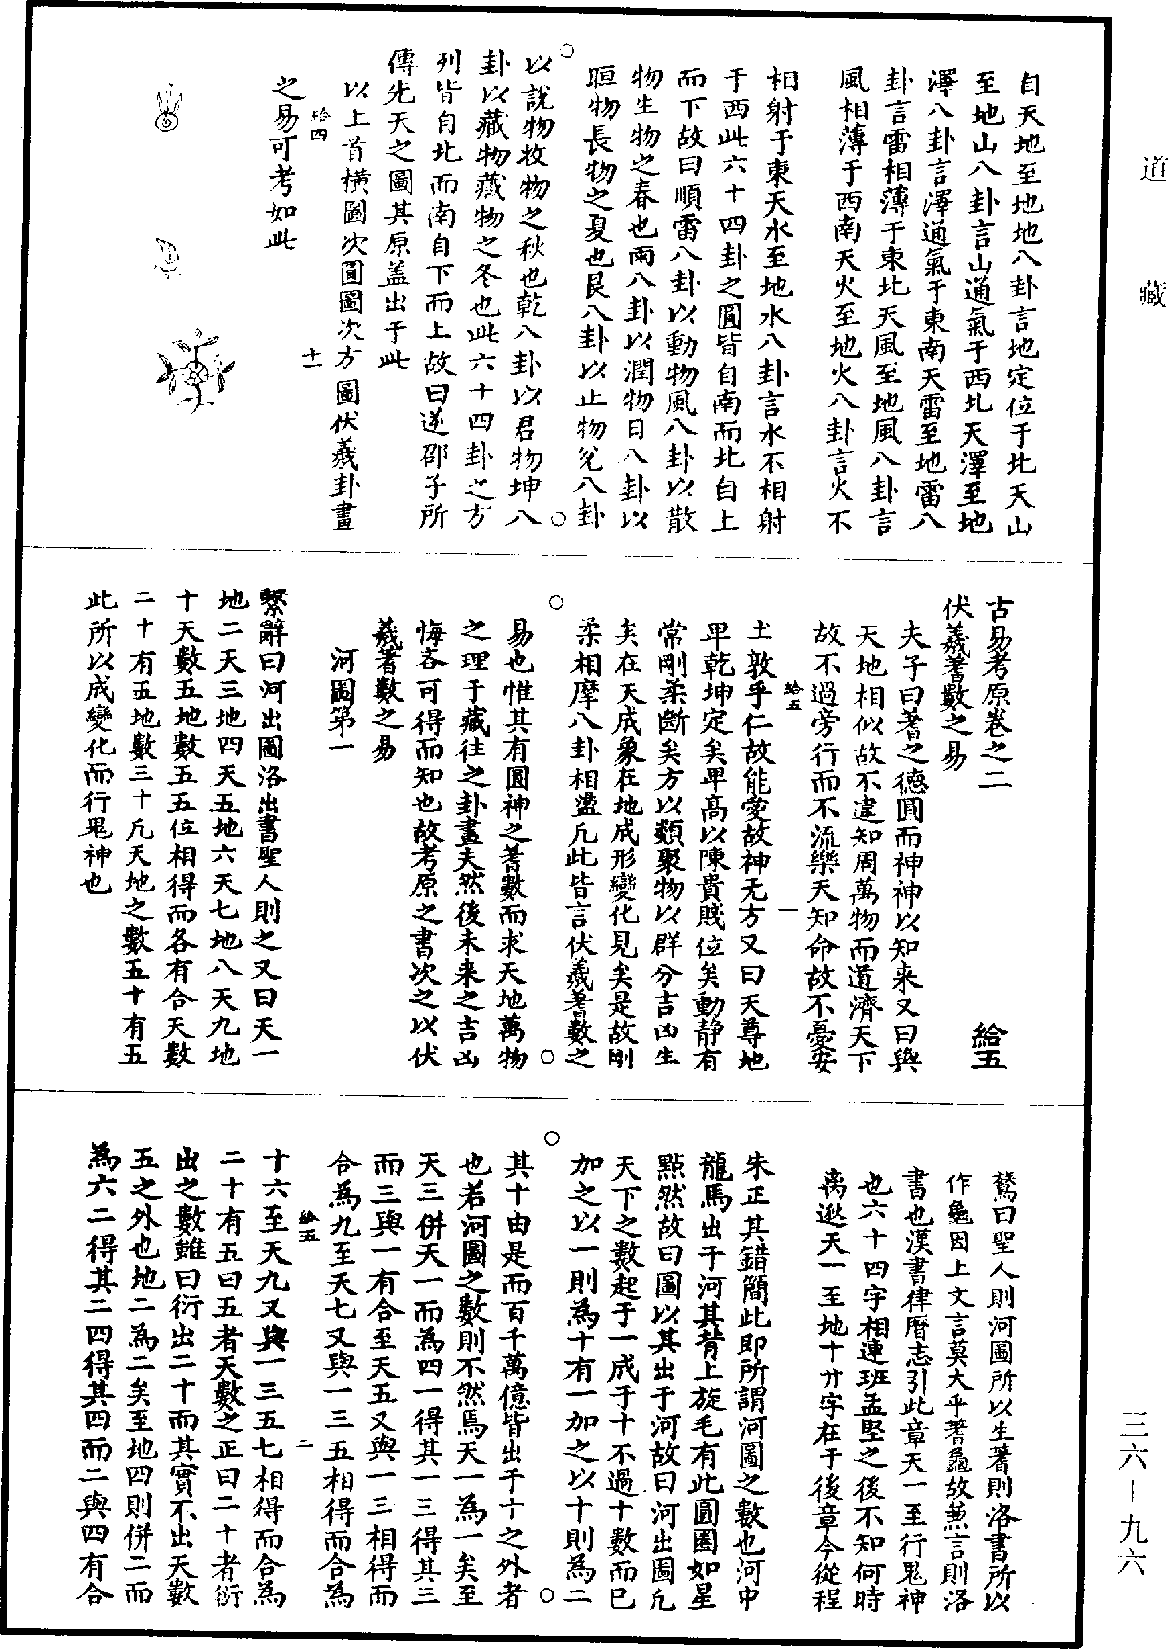 道藏
自天地至地地八卦言地定位于北天山
至地山八卦言山通氣于西北天澤至地
澤八卦言澤通氣于東南天雷至地雷八
卦言雷相薄于東北天風至地風八卦言
風相薄于西南天火至地火八卦言火不
相射于東天水至地水八卦言水不相射
于西此六十四卦之圓皆自南而北自上
而下故曰順雷八卦以動物風八卦以散
物生物之春也雨八卦以潤物日八卦以
晅物長物之夏也艮八卦以止物兌八卦
以說物收物之秋也乾八卦以君物坤八
卦以藏物藏物之冬也此六十四卦之方
列皆自北而南自下而上故曰逆邵子所
傳先天之圖其原蓋出于此
以上首橫圖次圓圖次方圖伏羲卦畫
給四 十一
之易可考如此
古易考原卷之二 給五
伏羲蓍數之易
夫子曰蓍之德圓而神神以知來又曰與
天地相似故不違知周萬物而道濟天下
故不過旁行而不流樂天知命故不憂安
給五 一
土敦乎仁故能愛故神无方又曰天尊地
卑乾坤定矣卑高以陳貴賤位矣動靜有
常剛柔斷矣方以類聚物以群分吉凶生
矣在天成象在地成形變化見矣是故剛
柔相摩八卦相盪凡此皆言伏羲蓍數之
易也惟其有圓神之蓍數而求天地萬物
之理于藏往之卦畫夫然後未來之吉凶
悔吝可得而知也故考原之書次之以伏
羲蓍數之易
河圖第一
繫辭曰河出圖洛出書聖人則之又曰天一
地二天三地四天五地六天七地八天九地
十天數五地數五五位相得而各有合天數
二十有五地數三十凡天地之數五十有五
此所以成變化而行鬼神也
鶩曰聖人則河圖所以生蓍則洛書所以
作龜因上文言莫大乎蓍龜故兼言則洛
書也漢書律曆志引此章天一至行鬼神
也六十四字相連班孟堅之後不知何時
离逖天一至地十廿字在于後章今從程
朱正其錯簡此即所謂河圖之數也河中
龍馬出于河其背上旋毛有此圓圈如星
點然故曰圖以其出于河故曰河出圖凡
天下之數起于一成于十不過十數而已
加之以一則為十有一加之以十則為二
其十由是而百千萬億皆出于十之外者
也若河圖之數則不然焉天一為一矣至
天三併天一而為四一得其一三得其三
而三與一有合至天五又與一三相得而
合為九至天七又與一三五相得而合為
給五 二
十六至天九又與一三五七相得而合為
二十有五曰五者天數之正曰二十者衍
出之數雖曰衍出二十而其實不出天數
五之外也地二為二矣至地四則併二而
為六二得其二四得其四而二與四有合
三六–九六